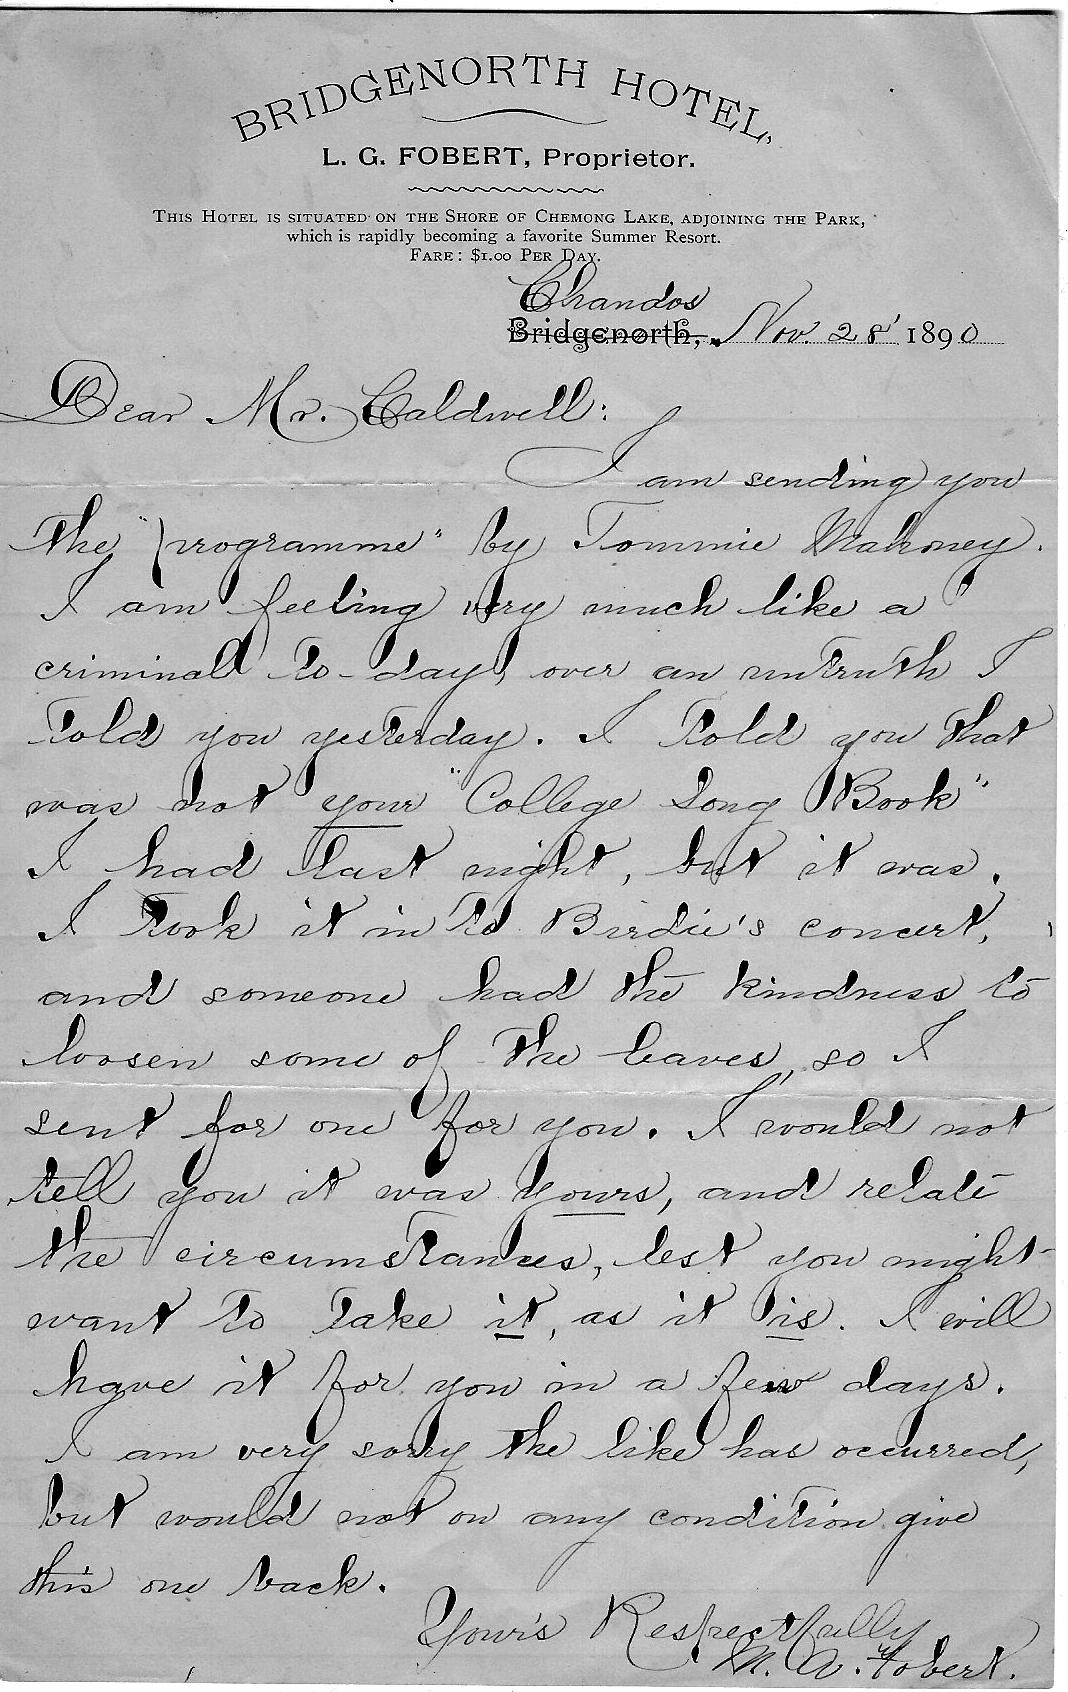 BRIDGENORTH HOTEL,
L. G. FOBERT, Proprietor.
THIS HOTEL IS SITUATED ON THE SHORE OF CHEMONG LAKE, ADJOINING THE PARK,
which is rapidly becoming a favorite Summer Resort.
FARE: $1.00 PER DAY.
Chandos
Bridgenorth, Nov. 28' 1890
Dear Mr. Caldwell:
I am sending you
the "programme" by Tommie Mahoney.
I am feeling very much like a
criminal to-day, over an untruth I
told you yesterday. I told you that
was not your "College Song Book"
I had last night, but it was.
I took it in to Birdie's concert,
and someone had the kindness to
loosen some of the leaves, so I
sent for one for you. I would not
tell you it was yours, and relate
the circumstances, lest you might
want to take it, as it is. I will
have it for you in a few days.
I am very sorry the like has occurred,
but would not on any condition give
this one back.
Your's Respectfully
M. A. Fobert.